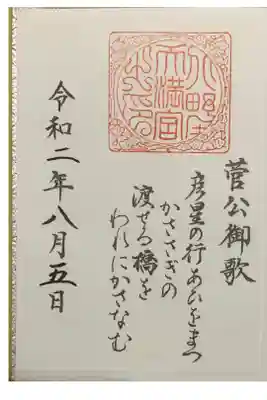 菅公御歌
彦星の行あひをまつ
かささぎの
渡せる橋を
われにかさなむ
北野天満宮
令和二年八月五日